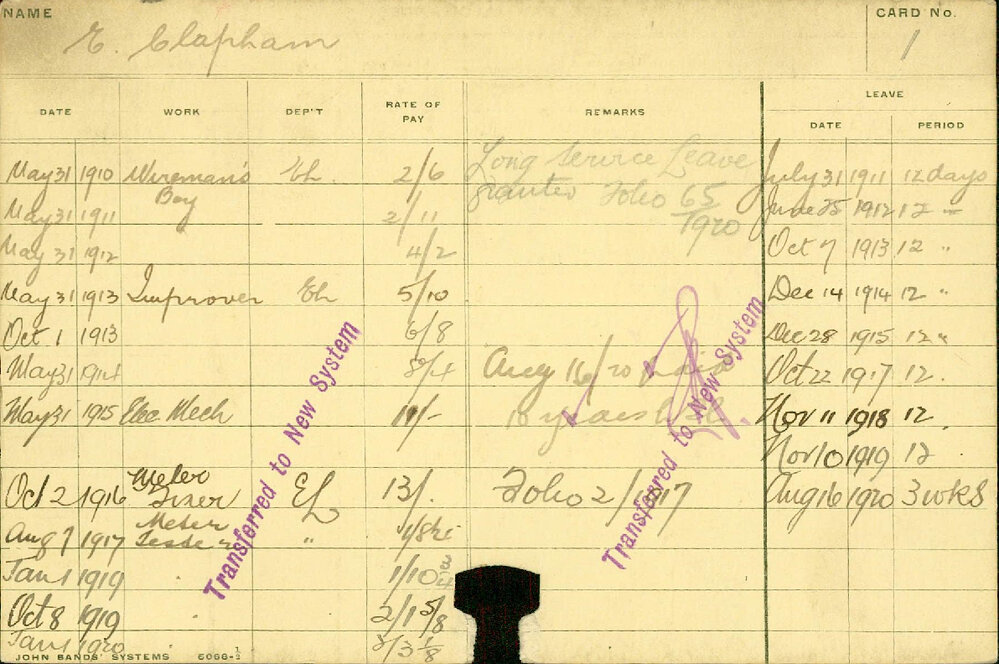 NAME
E. Clapham
CARD No.
1
DATE WORK DEP'T RATE OF PAY REMARKS LEAVE
DATE PERIOD
May 31 1910 Wireman's El. 2/6 Long Service Leave July 31 1911 12 days
Boy
May 31 1911 2/11 granted Folio 65/1920 June 25 1912 12 "
May 31 1912 4/2 Oct 7 1913 12 "
May 31 1913 Improver El 5/10 Dec 14 1914 12 "
Oct 1 1913 6/8 Dec 28 1915 12 "
May 31 1914 8/4 Aug 16/20 Paid Oct 22 1917 12.
May 31 1915 Elec. Mech 11/- 10 years Nov 11 1918 12.
Nov 10 1919 12
Oct 2 1916 Meter Fixer EL 13/. Folio 2/1917 Aug 16 1920 3 wks
Aug 7 1917 Meter Teste "
Jan 1 1919 1/10 3/4
Oct 8 1919 2/1 5/8
Jan 1 1920 2/3 1/8
Transferred to New System
Transferred to New System
JOHN BANDS' SYSTEMS